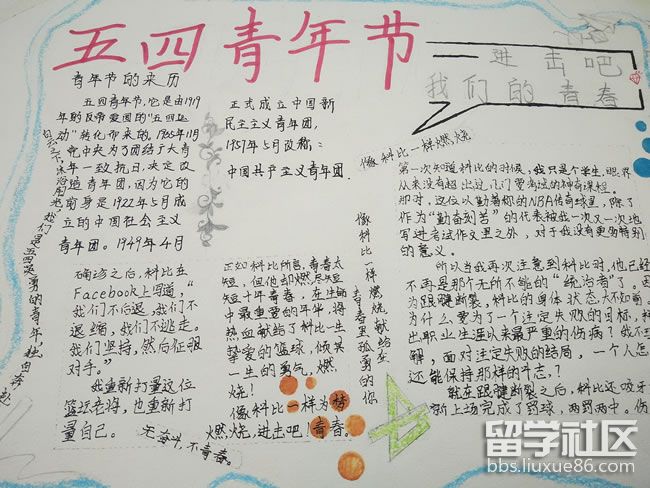 五四青年节
进击吧
我们的青春
青年节的来历
五四青年节,它是由1919
年的反帝爱国的"五四运
动"转化而来的,
党中央为了团结广大青
年一致抗日,决定改
造青年团,因为它的
前身是1922年5月成
立的中国社会主义
青年团。1949年4月
正式成立中国新
民主主义青年团,
1957年5月改称:
中国共产主义青年团.
像科比一样燃烧
第一次知道科比的时候,我只是个学生,眼界
从来没有超出过几门要考试的神奇课程.
那时,这位以勤著称的NBA传奇球星,除了
作为"勤奋刻苦"的代表被我一次又一次地
写进考试作文里之外,对于我没有更多特别
的意义。
所以当我再次注意到科比时,他已经
不再是那个无所不能的"统治者"了。因
为跟腱断裂,科比的身体状态大不如前。
为什么要为了一个注定失败的目标,
出职业生涯以来最严重的伤病?我不
解,面对注定失败的结局,一个人怎
还能保持那样的斗志?
就在跟腱断裂之后,科比还咬牙
上场完成了罚球,两罚两中。伤
确诊之后,科比在
Facebook上写道,"
我们不后退,我们不
退缩,我们不逃走。
我们坚持,然后征服
对手。"
我重新打量这位
篮坛老将,也重新打
量自己。
无奋斗,不青春。
正如科比所言,青春太
短,但他却燃尽短
短十年青春,在生命
中最重要的年华,将
热血献给了科比一生
挚爱的篮球,倾其
一生的勇气,燃
烧!
像科比一样为梦
燃烧,进击吧!青春。
像科比一样燃烧献给在
青春里孤勇的你
留学社区
bbs.liuxue86.com